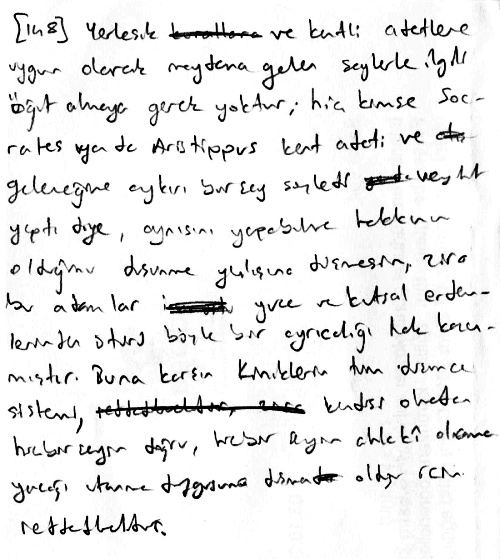 [148] Yerleşik ve kentli adetlere
uygun olarak meydana gelen şeylerle ilgili
öğüt almaya gerek yoktur; hiç kimse Soc-
rates ya da Aristippus kent adeti ve
geleneğine aykırı bir şey söyledi veya
yaptı diye, aynısını yapabilme hakkının
olduğunu düşünme yanlışına düşmesin, zira
bu adamlar yüce ve kutsal erdem-
lerinden ötürü böyle bir ayrıcalığı hak kazan-
mıştır. Buna karşın Kiniklerin tüm düşünce
sistemi, kendisi olmadan
hiçbir şeyin doğru, hiçbir şeyin ahlekî olama-
yacağı utanma duygusuna düşman olduğu için
reddedilmelidir.